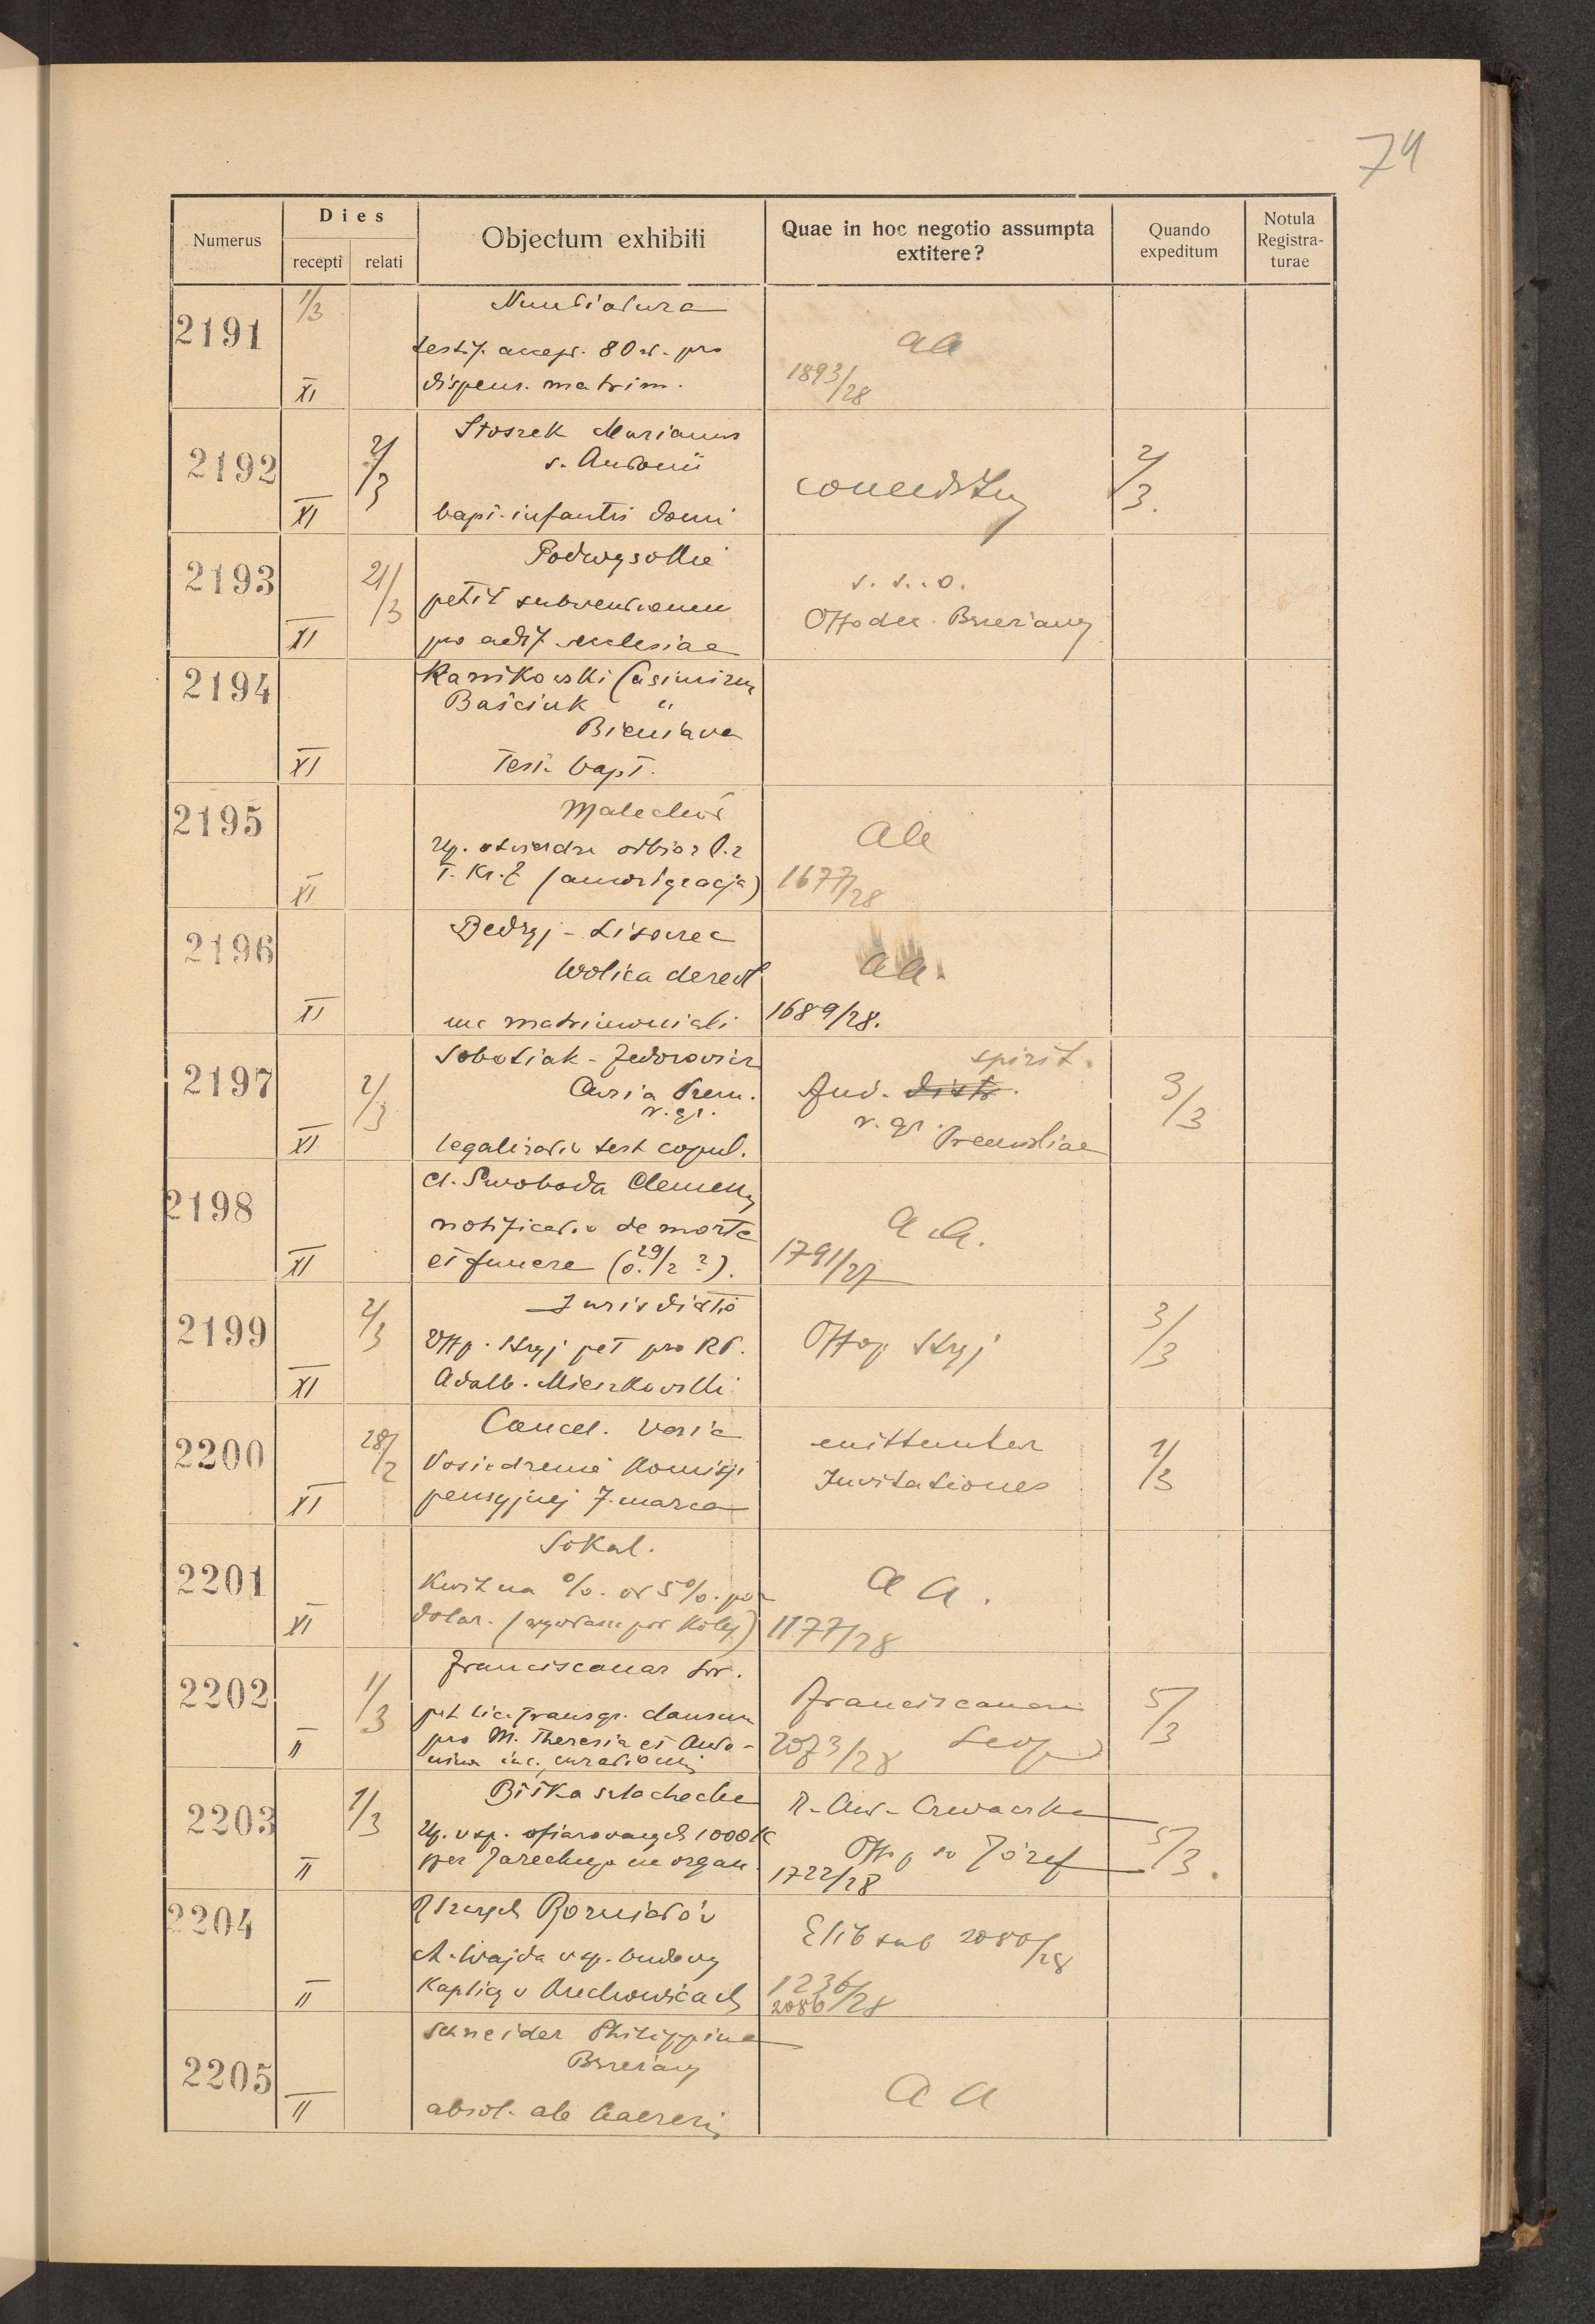 74
Dies
Numerus
recepti
relati
Objectum exhibiti
Quae in hoc negotio assumpta
extitere?
Quando
expeditum
Notula
Registra-
turae
2191
1/3
XI
Nuntiatura
testif. accept. 80 zł. pro
dispens. matrim.
aa
1893/28
2192
XI
2/3
Stoszek Marianus
s. Antonii
bapt. infantis domi
conceditur
2/3.
2193
XI
2/3
Podwysokie
petit subventionem
pro aedif. ecclesiae
s. s. o.
Offo dec. Brzeżany
2194
XI
Kanikowski Casimirus
Baściuk "
Bieniawa
Test. bapt.
2195
XI
Malechów
Up. stwierdza odbiór
T. Kr. Z (amortyzacja)
aa
1677/28
2196
XI
Bedryj - Lisowec
Wolica derewl.
matrimoniali
aa.
1689/28.
2197
XI
2/3
Sobotiak - Fedorowicz
Curia Prem.
r. gr.
legalizatio test copul.
spirit.
Jud. distr.
r. gr. Premisliae
3/3
2198
XI
Cl. Swoboda Clemens
notificatio de morte
et funere (o. 29/2 ?).
a a.
1791/27
2199
XI
2/3
Jurisdictio
Offp. Stryj pet pro RP.
Adalb. Mieszkowski
Offop Stryj
3/3
2200
XI
28/2
Cancel. varia
Posiedzenie Komisji
pensyjnej 7. marca
emittuntur
Invitationes
1/3
2201
XI
Sokal.
Kwit na %. od 5%. poż
dolar. (wydane por Koley)
a a.
1177/28
2202
II
1/3
Franciscanar Lw.
pet lic. transgr. clausura
pro M. Theresia et Anto-
nina inc. curationis
Franciscanar
Leop
2073/28
5/3
2203
II
1/3
Biłka szlachecka
Up. w sp. ofiarowanych 1000 K
per Jarechuja na organ
R. Ant. Czwaczka
Offp so Józef
1722/28
5/3.
2204
II
A. Wajda w sp. budowy
Kaplicy w Brzuchowicach
Elib sub 2086/28
1236
2086/28
2205
II
Schneider Philippina
Brzeżany
absol. ab haeresi
a a